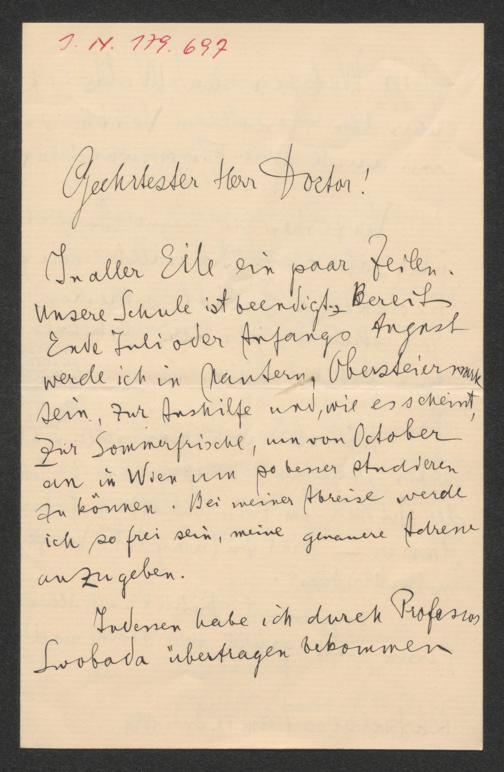 J. N. 179.697
Geehrtester Herr Doctor!
In aller Eile ein paar Zeilen.
Unsere Schule ist beendigt. Bereits
Ende Juli oder Anfangs August
werde ich in Mautern, Obersteiermark
sein, zur Aushilfe und, wie es scheint,
zur Sommerfrische, um von October
an in Wien um so besser studieren
zu können. Bei meiner Abreise werde
ich so frei sein, meine genauere Adresse
anzugeben.
Indessen habe ich durch Professor
Swoboda übertragen bekommen